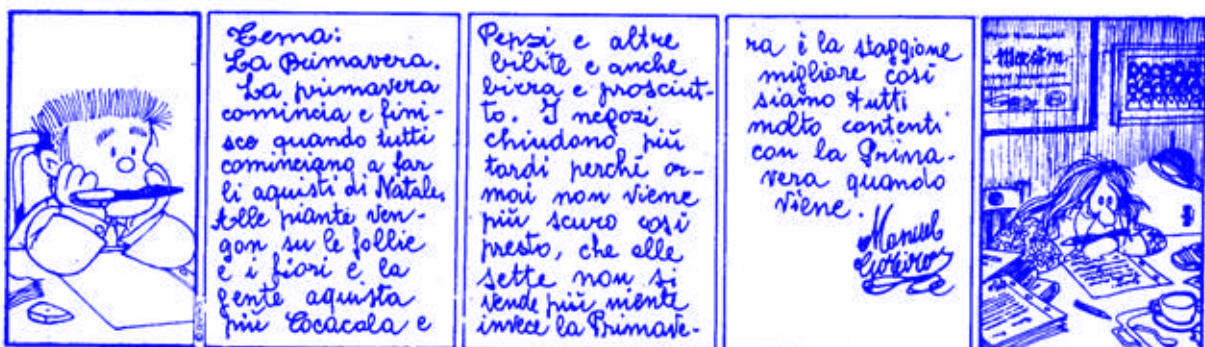 Tema:
La Primavera.
La primavera
comincia e fini-
sce quando tutti
cominciano a far
li aquisti di Natale.
Alle piante ven-
gon su le follie
e i fiori e la
gente aquista
più Cocacola e
Pepsi e altre
bibite e anche
birra e prosciut-
to. I negozi
chiudono più
tardi perché or-
mai non viene
più scuro così
presto, che alle
sette non si
vende più niente
invece la Primave-
ra è la staggione
migliore così
siamo tutti
molto contenti
con la Prima-
vera quando
viene.
Manuel
Goreiro
Maestra